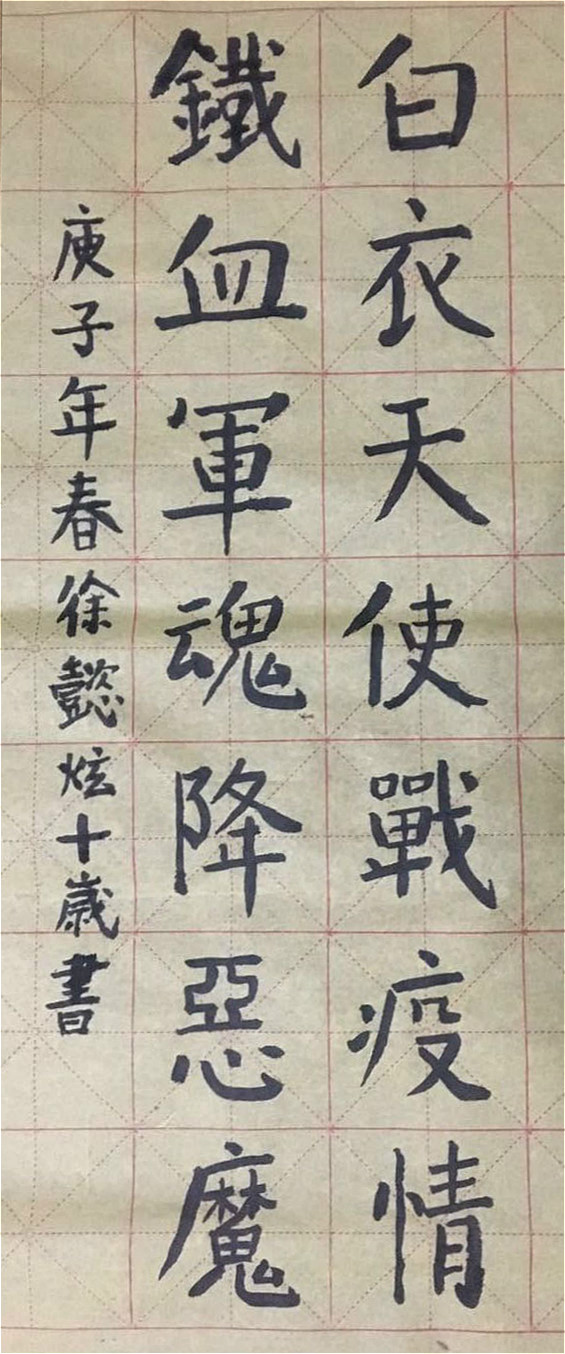 白衣天使戰疫情
鐵血軍魂降惡魔
庚子年春徐懿炫十歲書